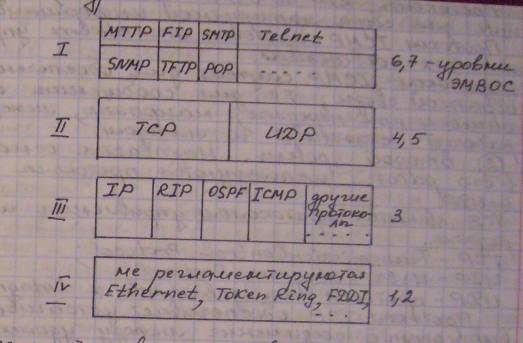 в)
I
MTTP FTP SMTP Telnet
SNMP TFTP POP .....
6,7 - уровни
ЭМВОС
II
TCP UDP
4,5
III
IP RIP OSPF ICMP другие
протоко-
лы
.....
3
IV
не регламентируются
Ethernet, Token Ring, FDDI,
...
1,2